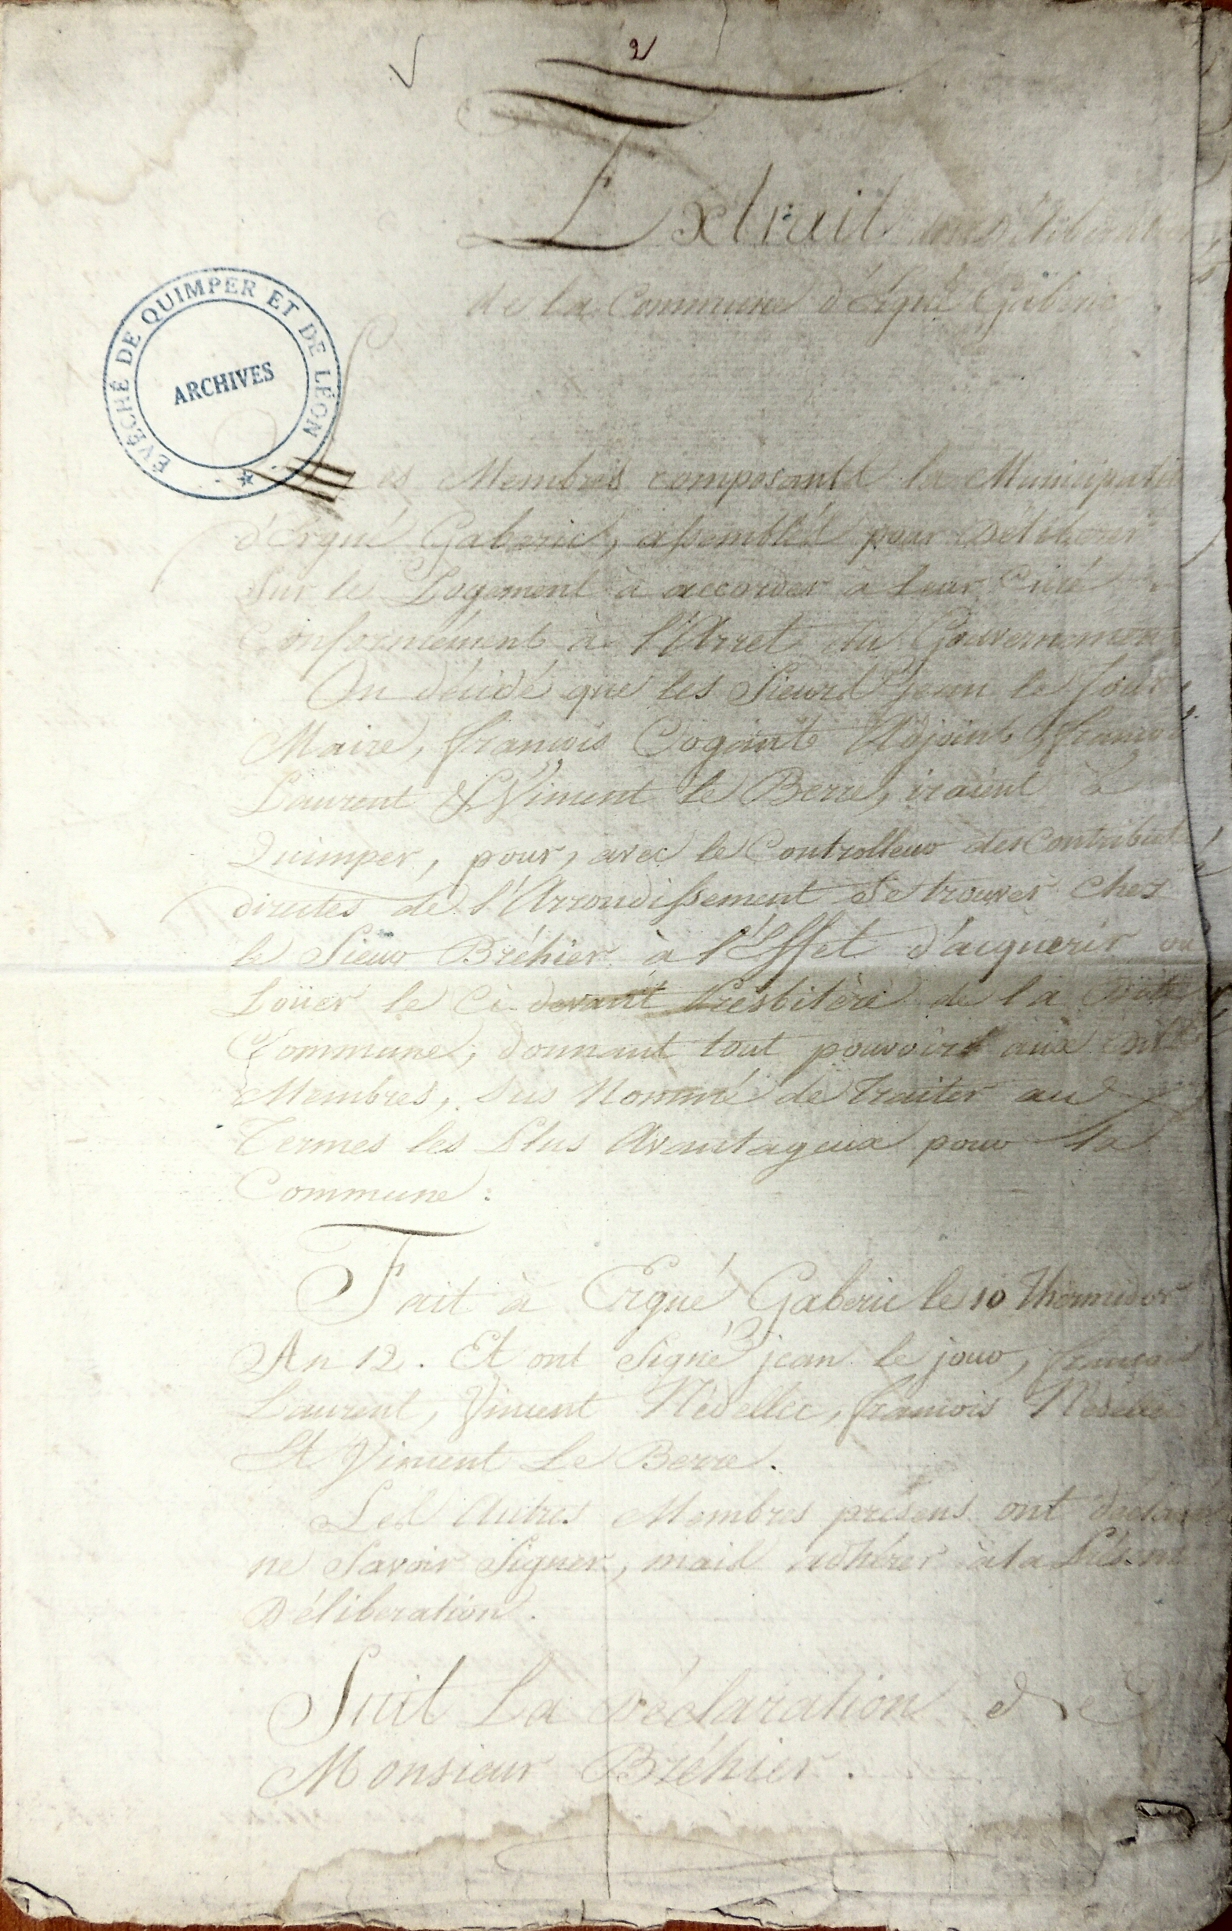 2
Extrait des Délibérations
de la Commune d'Ergué Gaberic
ÉVÊCHÉ DE QUIMPER ET DE LÉON
ARCHIVES
Les Membres composants la Municipalité
d'Ergué Gaberic, assemblés pour Délibérer
Sur le Logement à accorder à leur Curé
Conformément à l'Arret du Gouvernement
On décidé que les Sieurs Jean le Jour
Maire, françois Gogant Adjoint, françois
Laurent & Vincent le Berre, iraient à
Quimper, pour, avec le Controlleur des Contributs
directes de l'Arrondissement Se trouver Chez
le Sieur Bréhier à l'Effet d'acquerir ou
Loüer le Ci devant Presbitère de la dite
Commune, donnant tout pouvoirs aux dits
Membres, Sus Nommé de Traiter au
Termes les Plus Avantageux pour la
Commune.
Fait à Ergué Gaberic le 10 Thermidor
An 12. Et ont Signé jean le jour, françois
Laurent, Vincent Nédellec, francois Nédellec
Et Vincent Le Berre.
Les Autres Membres présens ont déclaré
ne Savoir Signer, mais adhérer à la Présente
Déliberation.
Suit La Déclaration de
Monsieur Bréhier.